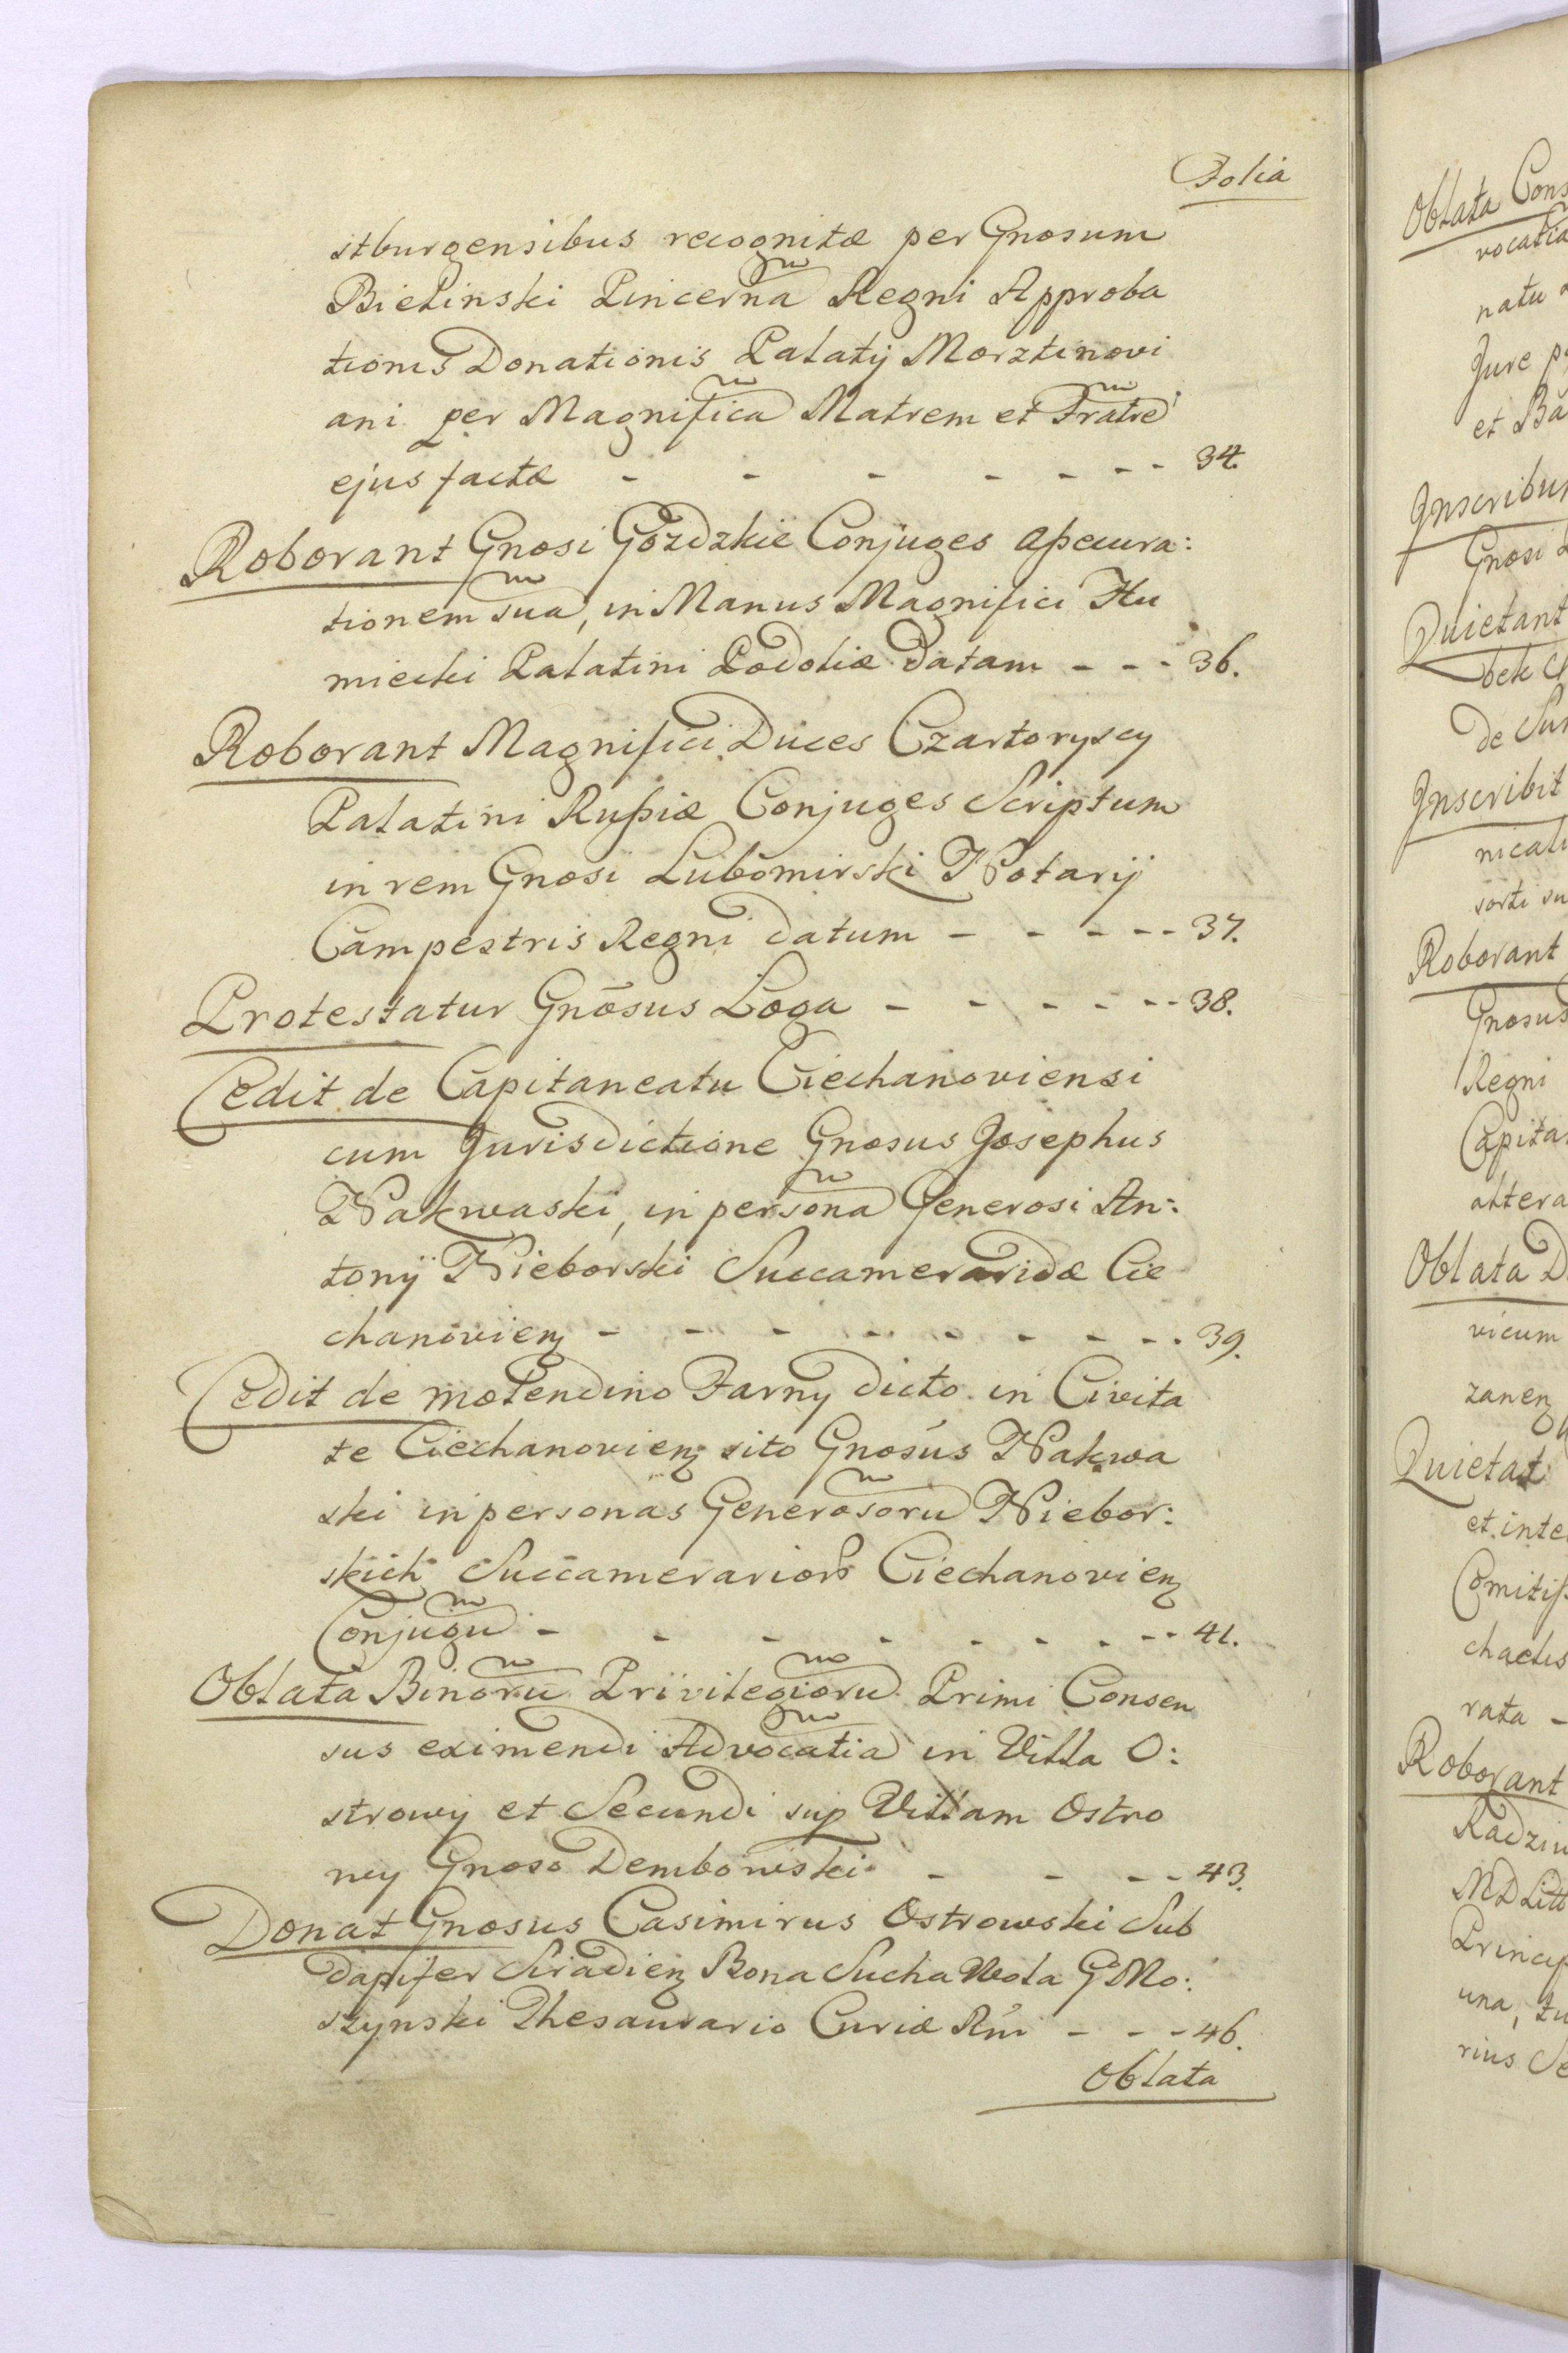 Folia
stburgensibus recognitæ per Gnosum
Bielinski Pincernã Regni Approba
tionis Donationis Palatij Morztinovi
ani per Magnificã Matrem et Fratrẽ
ejus factæ - - - - - - - 34.
Roborant Gnosi Gozdzkie Conjuges aßecura:
tionem suã, in Manus Magnifici Hu
miecki Palatini Podoliæ datam - - - 36.
Roborant Magnifici Duces Czartoryscy
Palatini Rußiæ Conjuges Scriptum
in rem Gnosi Lubomirski Notarij
Campestris Regni datum - - - - - 37.
Protestatur Gnõsus Loga - - - - - - 38.
Cedit de Capitaneatu Ciechanoviensi
cum Jurisdictione Gnosus Josephus
Nakwaski, in personã Generosi An:
tonij Nieborski Succameraridæ Cie
chanovienȝ - - - - - - - - - 39.
Cedit de molendino Farny dicto in Civita
te Ciechanovienȝ sito Gnosus Nakwa
ski in personas Generosorũ Niebor:
skich Succamerarior Ciechanovienȝ
Conjugũ - - - - - - - - - 41.
Oblata Binorũ Privilegiorũ Primi Consen
sus eximendi Advocatiã in Villa O:
strowy et Secundi sup Villam Ostro
wy Gnoso Dembowski - - - - 43.
Donat Gnosus Casimirus Ostrowski Sub
dapifer Siradienȝ Bona Sucha Wola G Mo:
szynski Thesaurario Curiæ Rni - - - 46.
Oblata
Oblata Cons
vocatio
natu
Jure
et
Inscribun
Gnosi
Quietant
bek
de Sum
Inscribit
nicali
sorti su
Roborant
Gnosus
Regni
Capita
altera
Oblata D
vicum
zanenȝ
Quietat
et inte
Comitiß
chaelis
rata -
Roborant
Radziw
MD Litt
Princip
una, tu
rius Se